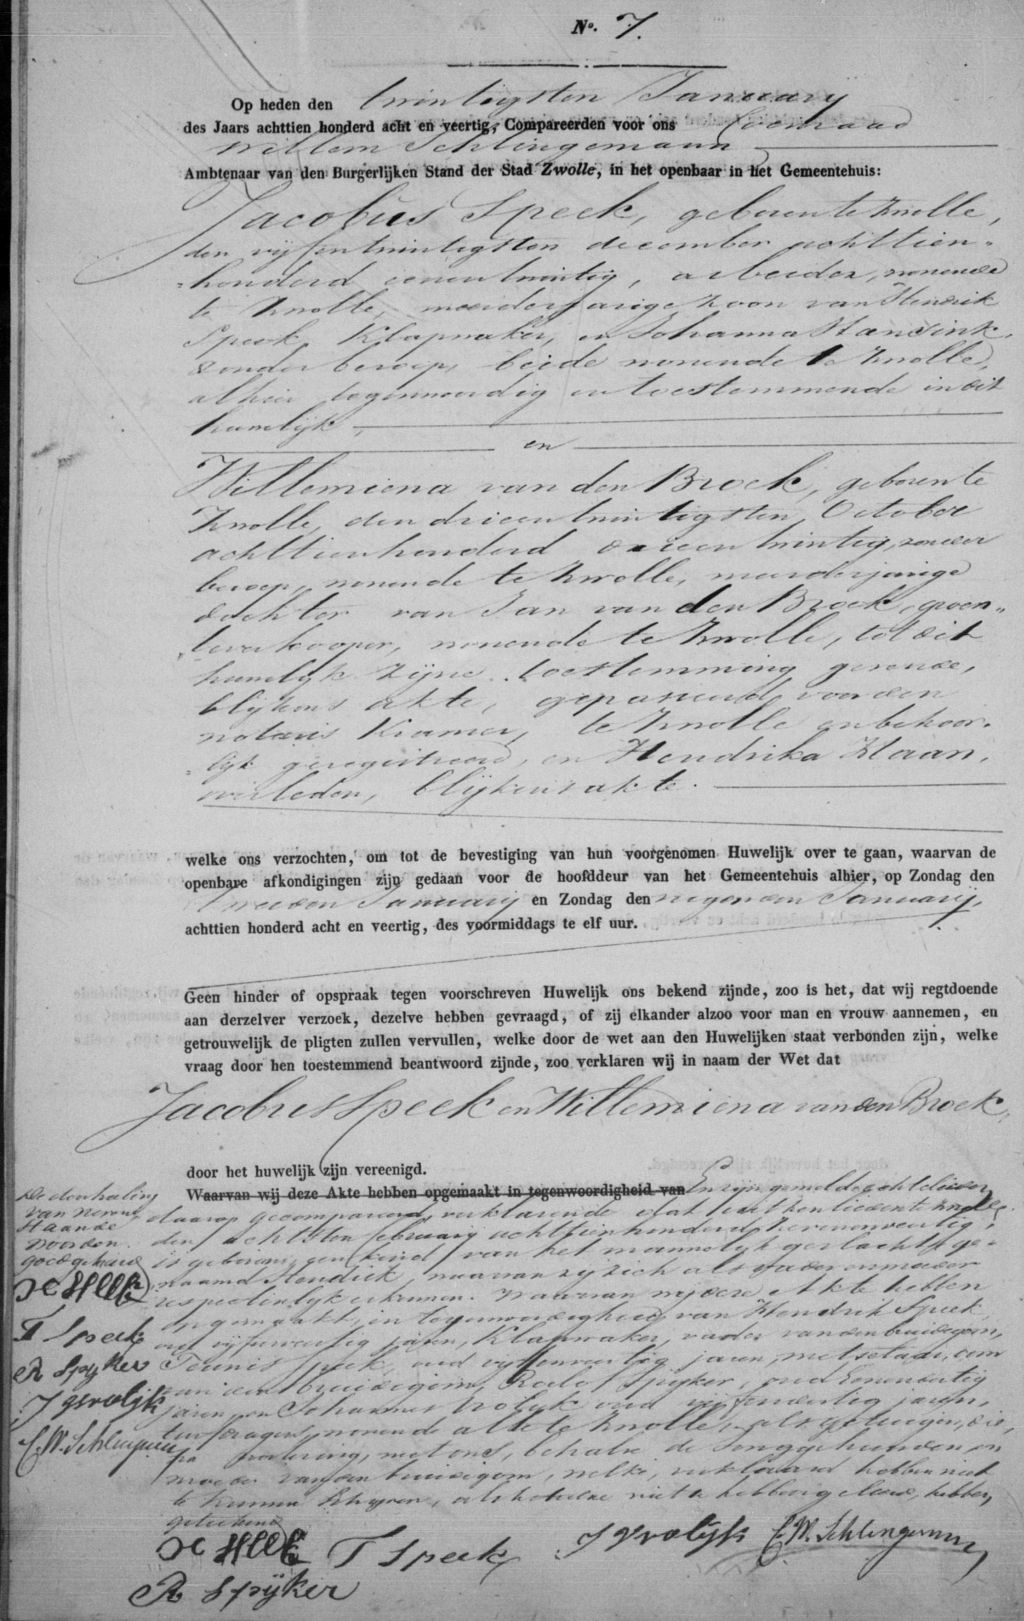 No. 7.
Op heden den twintigsten Januarij
des Jaars achttien honderd acht en veertig, Compareerden voor ons Coenraad
Willem Schlingemann
Ambtenaar van den Burgerlijken Stand der Stad Zwolle, in het openbaar in het Gemeentehuis:
Jacobus Speek, geboren te Zwolle,
den vijfentwintigsten december achttien-
honderd eenentwintig, arbeider, wonende
te Zwolle, meerderjarige zoon van Hendrik
Speek, Klapwaker, en Johanna Hansink,
zonder beroep, beide wonende te Zwolle,
alhier tegenwoordig en toestemmende in dit
huwelijk,
en
Willemiena van den Broek, geboren te
Zwolle, den drieentwintigsten October
achttienhonderd drieentwintig, zonder
beroep, wonende te Zwolle, meerderjarige
dochter van Jan van den Broek, groen-
verkooper, wonende te Zwolle, tot dit
huwelijk zijne toestemming gevende,
blijkens akte, gepasseerd voor den
notaris Kramer, te Zwolle en behoor-
lijk geregistreerd, en Hendrika Haan,
overleden, blijkens akte.
welke ons verzochten, om tot de bevestiging van hun voorgenomen Huwelijk over te gaan, waarvan de
openbare afkondigingen zijn gedaan voor de hoofddeur van het Gemeentehuis alhier, op Zondag den
tweeden Januarij en Zondag den negenden Januarij,
achttien honderd acht en veertig, des voormiddags te elf uur.
Geen hinder of opspraak tegen voorschreven Huwelijk ons bekend zijnde, zoo is het, dat wij regtdoende
aan derzelver verzoek, dezelve hebben gevraagd, of zij elkander alzoo voor man en vrouw aannemen, en
getrouwelijk de pligten zullen vervullen, welke door de wet aan den Huwelijken staat verbonden zijn, welke
vraag door hen toestemmend beantwoord zijnde, zoo verklaren wij in naam der Wet dat
Jacobus Speek en Willemiena van den Broek,
door het huwelijk zijn vereenigd.
Waarvan wij deze Akte hebben opgemaakt in tegenwoordigheid van En zijn gemelde echtelieden
daarop gecompareerd, verklarende dat uit hen lieden te Zwolle
den achtsten februarij achttienhonderd zevenenveertig,
is geboren, een kind van het mannelijk geslacht, ge-
naamd Hendrik, waarvan zij zich als vader en moeder
respectivelijk erkennen. Waarvan wij deze Akte hebben
opgemaakt, in tegenwoordigheid van Hendrik Speek,
oud vijfenveertig jaren, Klapwaker, vader van den bruidegom,
Teunis Speek, oud jaren, metselaar, oom
van den bruidegom, Roelof Spijker, oud jaren,
en Johannes Vrolijk oud vijfendertig jaren,
wonende alle te Zwolle, als getuigen, die,
na voorlezing, met ons, behalve de jonggehuwden en
moeder van den bruidegom, welke, verklaard hebben niet
te kunnen schrijven, als hetzelve niet te hebben geleerd, hebben
geteekend
De doorhaling
van nevens
staande
woorden
goedgekeurd
T Speek
R Spijker
J Vrolijk
C.W. Schlingemann
T Speek
J Vrolijk C.W. Schlingemann
R Spijker